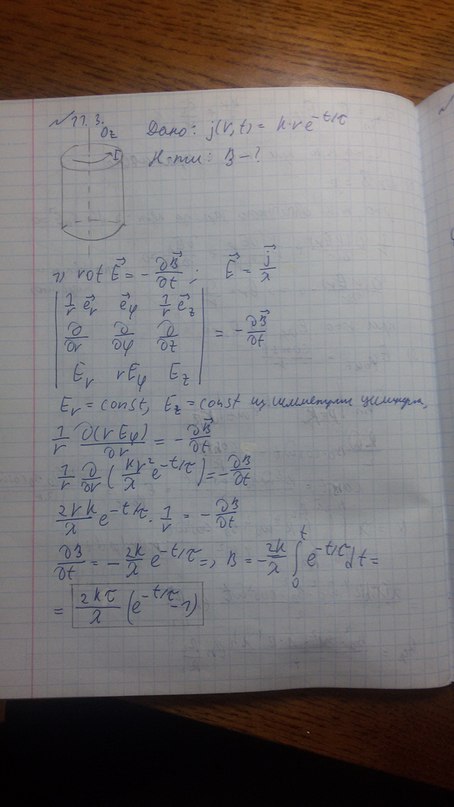 № 11.3.
Oz
Дано: j(r,t) = k·r e^{-t/τ}
Н-ти: B - ?
I
1) rot E⃗ = -∂B⃗/∂t ; E⃗ = j⃗/λ
| 1/r e⃗_r e⃗_φ 1/r e⃗_z |
| ∂/∂r ∂/∂φ ∂/∂z | = -∂B⃗/∂t
| E_r rE_φ E_z |
E_r = const, E_z = const из симметрии цилиндра,
1/r ∂(rE_φ)/∂r = -∂B⃗/∂t
1/r ∂/∂r (kr²/λ e^{-t/τ}) = -∂B/∂t
2rk/λ e^{-t/τ} · 1/r = -∂B/∂t
∂B/∂t = -2k/λ e^{-t/τ} =>, B = -2k/λ ∫₀ᵗ e^{-t/τ} dt =
= 2kτ/λ (e^{-t/τ} - 1)